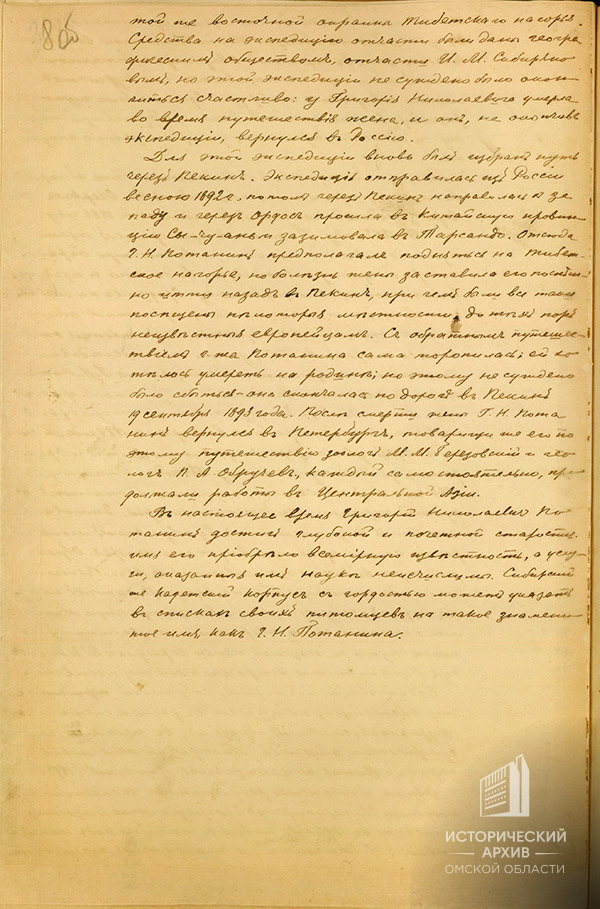 8об
той же восточной окраины Тибетскаго нагорья.
Средства на экспедицію отчасти были даны геогра-
фическимъ обществомъ, отчасти И. М. Сибиряко-
вымъ, но этой экспедиціи не суждено было окон-
читься счастливо: у Григорія Николаевича умерла
во время путешествія жена, и онъ, не окончивъ
экспедиціи, вернулся въ Россію.
Для этой экспедиціи вновь былъ избранъ путь
черезъ Пекинъ. Экспедиція отправилась изъ Россіи
весною 1892 г., потомъ черезъ Пекинъ направилась къ за-
паду и черезъ Ордосъ прошла въ Китайскую провин-
цію Сы-чу-ань и зазимовала въ Тарсандо. Отсюда
Г. Н. Потанинъ предполагалъ подняться на Тибет-
ское нагорье, но болѣзнь жены заставила его поспѣш-
но идти назадъ въ Пекинъ, при чемъ были все таки
посѣщены нѣкоторыя мѣстности, до тѣхъ поръ
неизвѣстныя европейцамъ. Съ обратнымъ путешес-
твіемъ г-жа Потанина сама торопилась; ей хо-
тѣлось умереть на родинѣ; но этому не суждено
было сбыться – она скончалась по дорогѣ въ Пекинъ
19 сентября 1893 года. Послѣ смерти жены Г. Н. Пота-
нинъ вернулся въ Петербургъ, товарищи же его по
этому путешествію зоологъ М. М. Березовскій и гео-
логъ В. А. Обручевъ, каждый самостоятельно, про-
должали работы въ Центральной Азіи.
Въ настоящее время Григорій Николаевичъ По-
танинъ достигъ глубокой и почетной старости;
имя его пріобрѣло всемірную извѣстность, а услу-
ги, оказанныя имъ наукѣ неисчислимы. Сибирскій
же кадетскій корпусъ съ гордостью можетъ указать
въ спискахъ своихъ питомцевъ на такое знамени-
тое имя, какъ Г. Н. Потанина.
ИСТОРИЧЕСКИЙ
АРХИВ
ОМСКОЙ ОБЛАСТИ